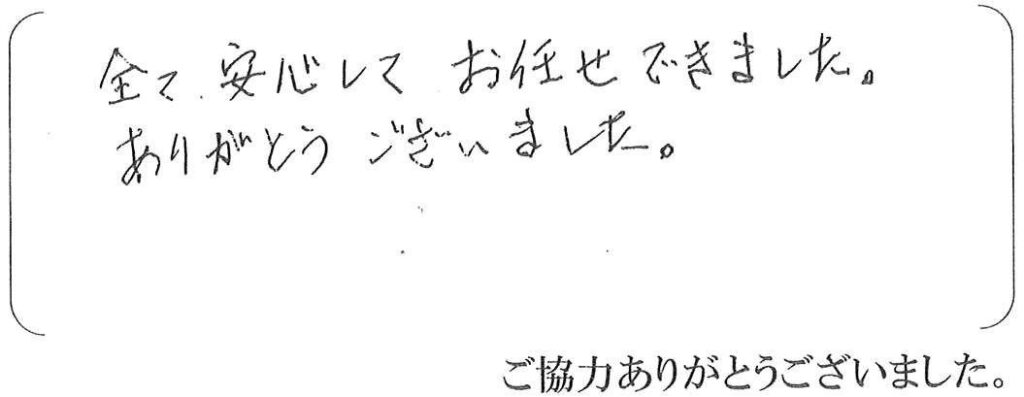 全て安心してお任せできました。
ありがとうございました。
ご協力ありがとうございました。